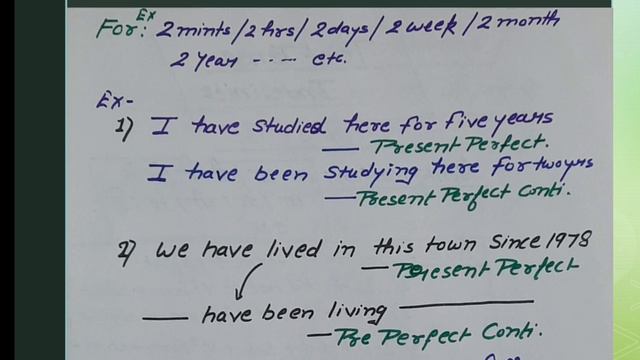 Ex
For: 2 mints / 2 hrs / 2 days / 2 week / 2 month
2 Year ---- etc.
Ex-
1) I have studied here for five years
— Present Perfect.
I have been studying here for two yrs
— Present Perfect Conti.
2) We have lived in this town since 1978
— Present Perfect
— have been living —
— Pre Perfect Conti.